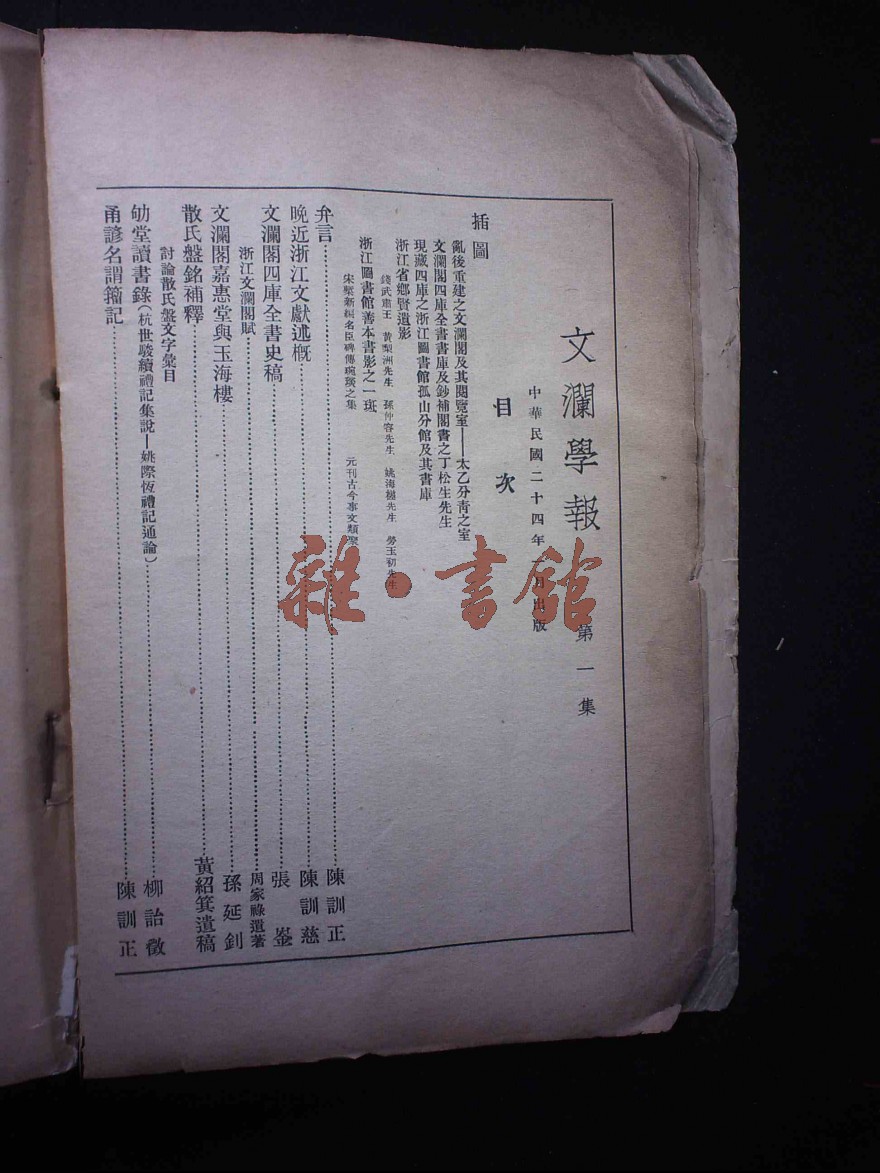 文瀾學報 第一集
中華民國二十四年 月出版
目次
插圖
亂後重建之文瀾閣及其閱覽室——太乙分青之室
文瀾閣四庫全書書庫及鈔補閣書之丁松生先生
現藏四庫之浙江圖書館孤山分館及其書庫
浙江省鄉賢遺影
錢武肅王 黃梨洲先生 孫仲容先生 姚海槎先生 勞玉初先生
浙江圖書館善本書影之一斑
宋槧新編名臣碑傳琬琰之集 元刊古今事文類聚
弁言 陳訓正
晚近浙江文獻述概 陳訓慈
文瀾閣四庫全書史稿 張崟
浙江文瀾閣賦 周家祿遺著
文瀾閣嘉惠堂與玉海樓 孫延釗
散氏盤銘補釋 黃紹箕遺稿
討論散氏盤文字彙目
劬堂讀書錄(杭世駿續禮記集說—姚際恆禮記通論) 柳詒徵
甬諺名謂籀記 陳訓正
雜·書館